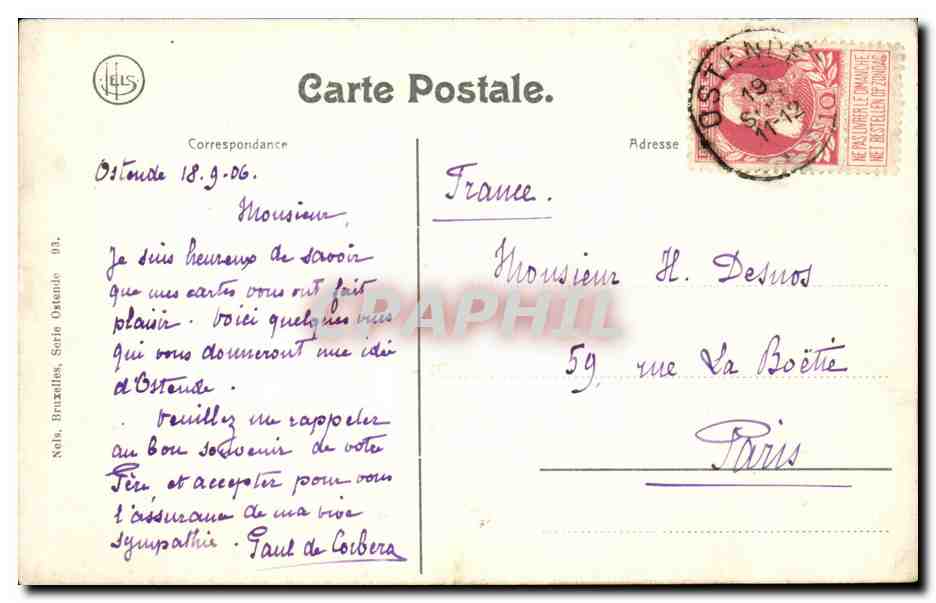 NELS
Carte Postale.
Correspondance
Adresse
OSTENDE
19
11-12
10
NE PAS LIVRER LE DIMANCHE
NIET BESTELLEN OP ZONDAG
Ostende 18.9.06.
Monsieur,
Je suis heureux de savoir
que mes cartes vous ont fait
plaisir. Voici quelques vues
qui vous donneront une idée
d'Ostende.
Veuillez me rappeler
au bon souvenir de votre
Père et accepter pour vous
l'assurance de ma vive
sympathie. Paul de Corbera
France.
Monsieur H. Desnos
59, rue La Boëtie
Paris
Nels, Bruxelles, Serie Ostende 93.
CPAPHIL